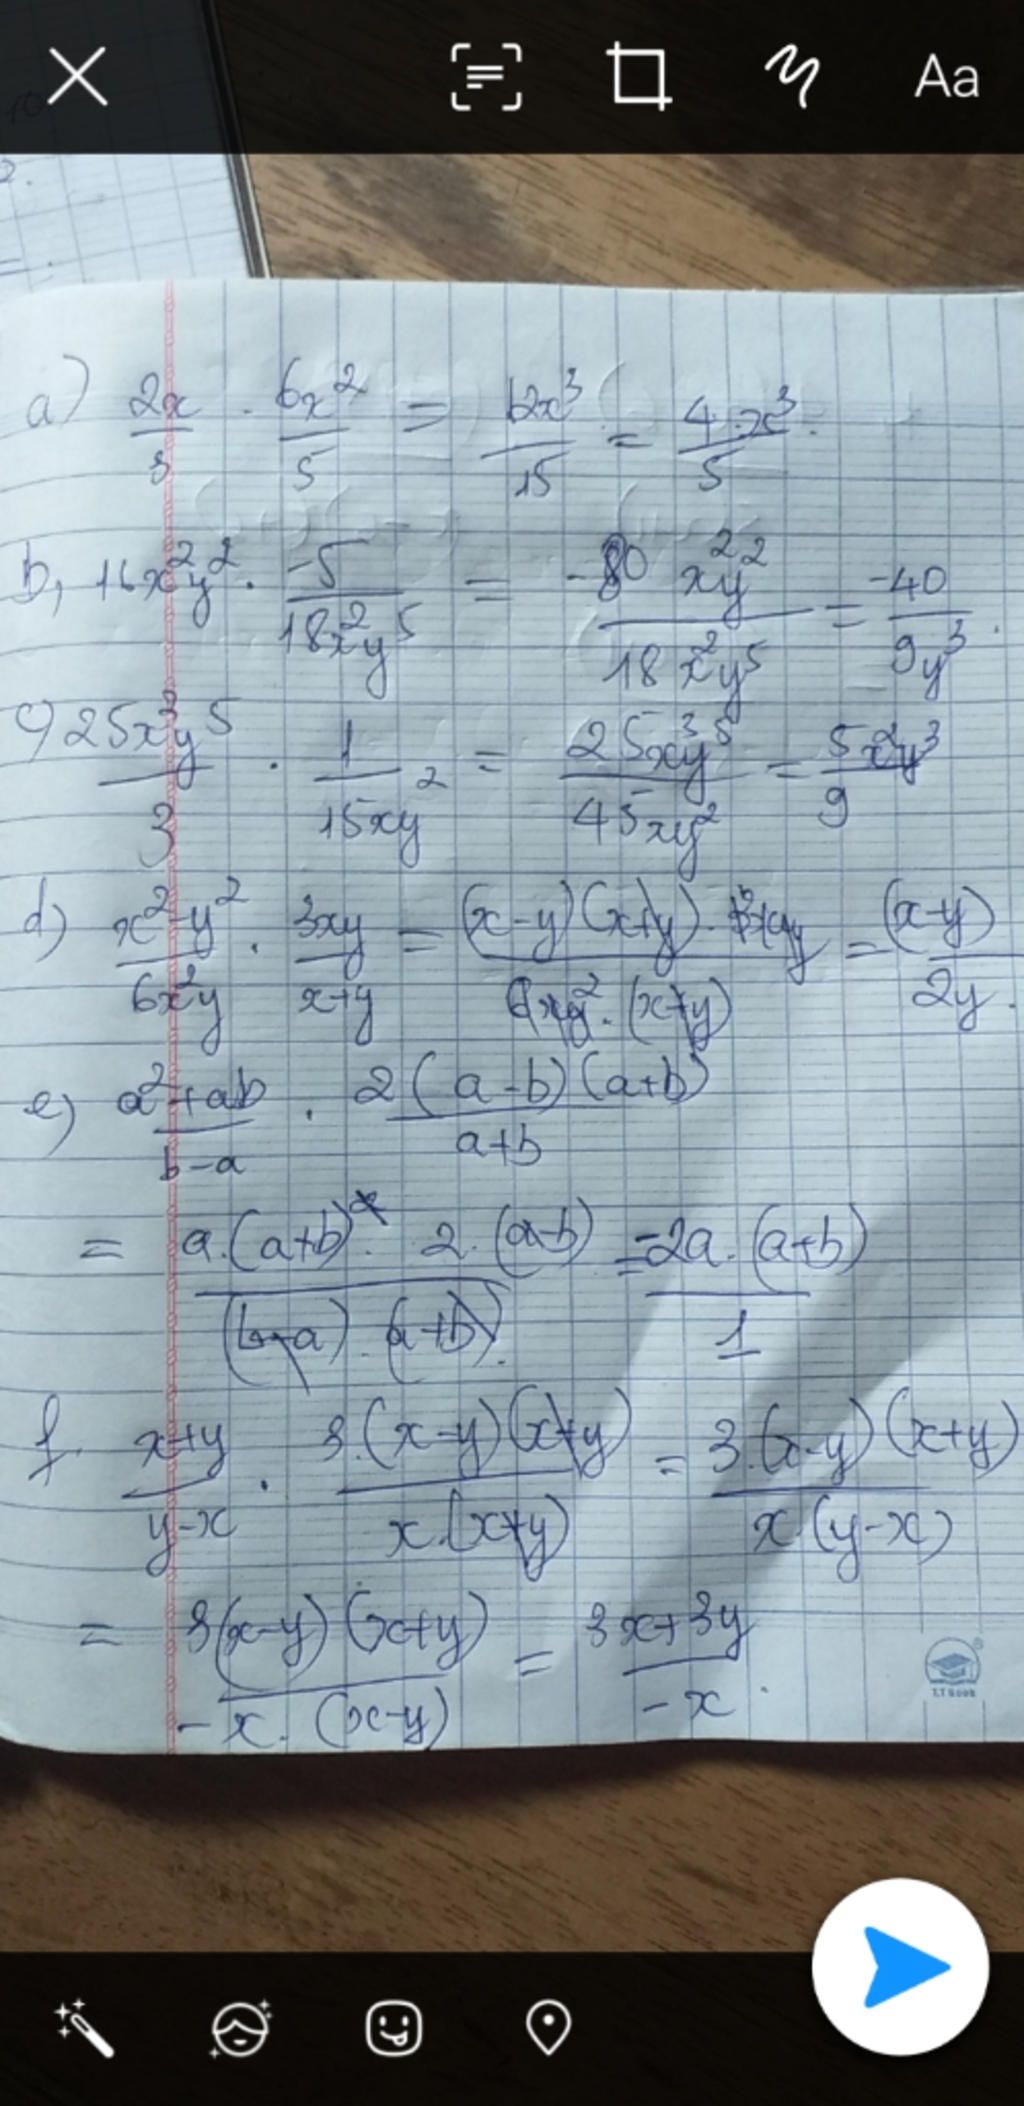 Aa
a) 2x/3 . 6x²/5 = 12x³/15 = 4.x³/5 .
b, 16x²y² . -5/18x²y⁵ = -80 x²y²/18 x²y⁵ = -40/9y³ .
c) 25x³y⁵/3 . 1/15xy² = 25x³y⁵/45xy² = 5x²y³/9
d) x²-y²/6x²y . 3xy/x+y = (x-y)(x+y). 3xy/6xy². (x+y) = (x-y)/2y .
e) a²+ab/b-a . 2(a-b)(a+b)/a+b
= a.(a+b). 2.(a-b)/(b-a).(a+b). = -2a.(a+b)/1
f. x+y/y-x . 3.(x-y)(x+y)/x.(x+y) = 3.(x-y)(x+y)/x.(y-x)
= 3(x-y)(x+y)/-x.(x-y) = 3x+3y/-x .
T.T Book